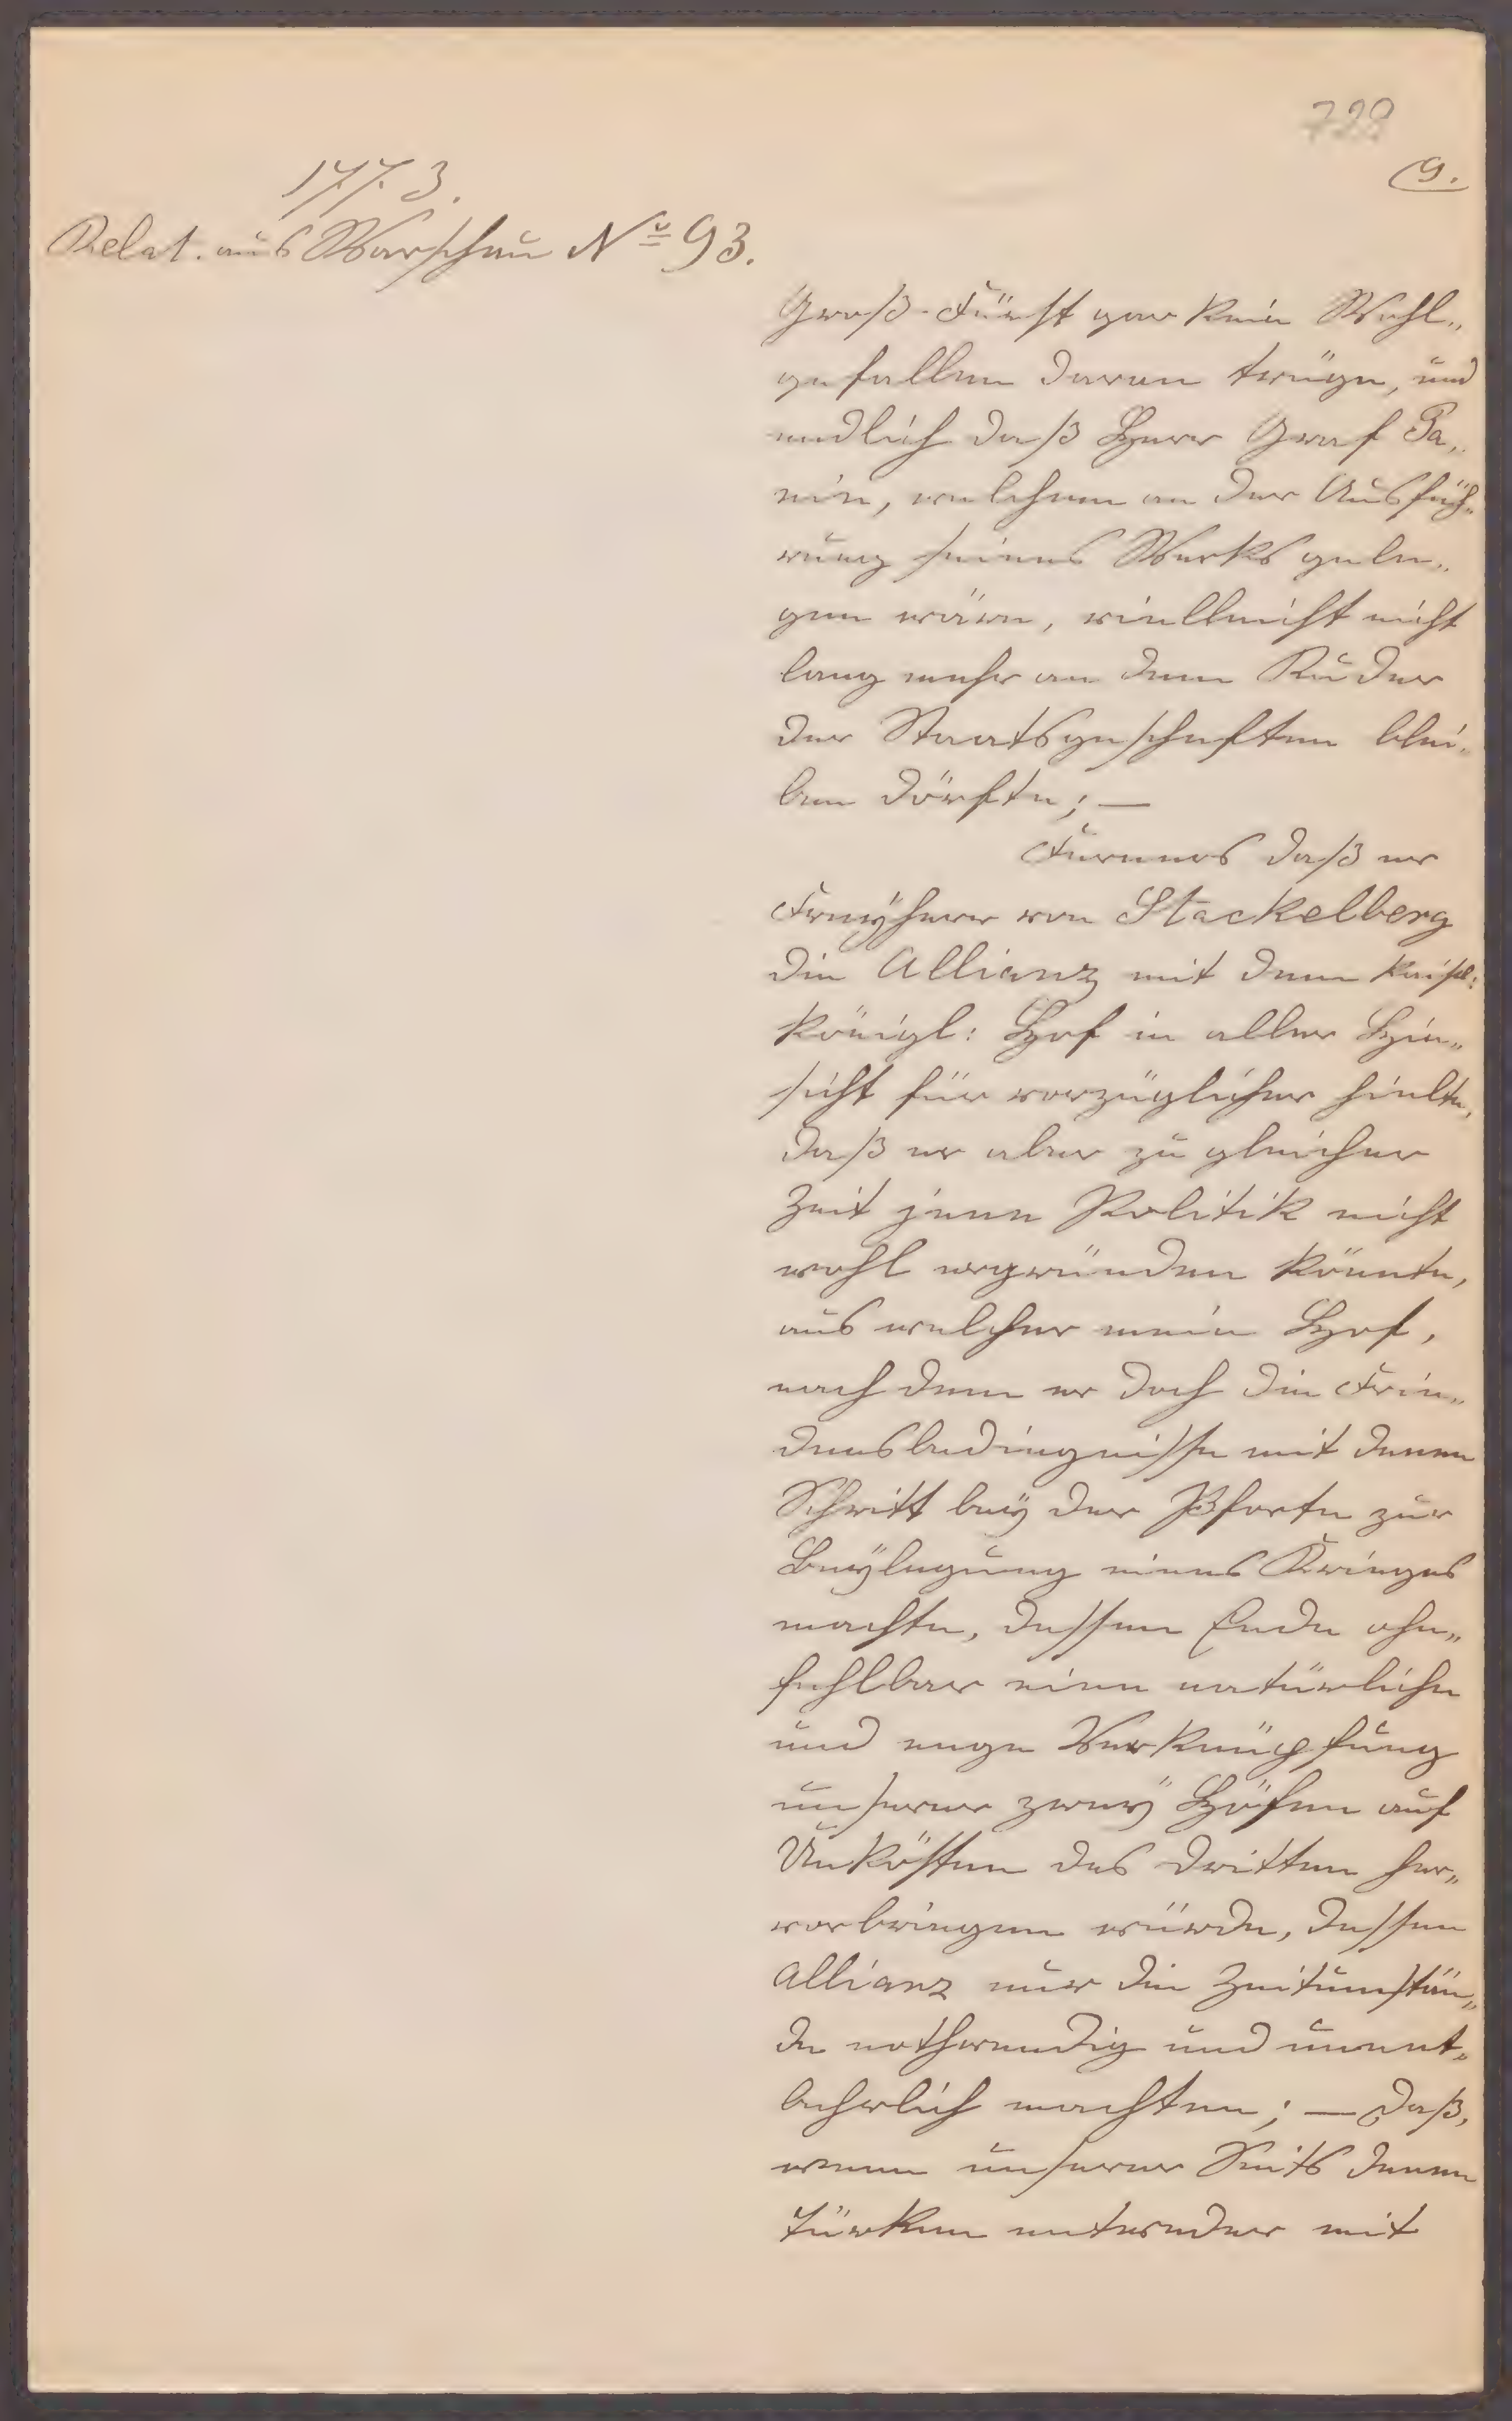 728
9.
1773.
Relat. aus Warschau No 93.
Groß-Fürst gar kein Wohl„
gefallen daran trüge, und
endlich daß Herr Graf Pa„
nin, welchem an der Ausfüh„
rung seines Werks gele„
gen wäre, vielleicht nicht
lang mehr an dem Ruder
der Staatsgeschäften blei„
ben dörfte; —
Ferners daß er
Freÿherr von Stackelberg
die Allianz mit dem Kaisl:
Königl: Hof in aller Hin„
sicht für vorzüglicher hielte,
daß er aber zu gleicher
Zeit jene Politik nicht
wohl ergründen könnte,
aus welcher mein Hof,
nach dem er doch die Frie„
densbedingnisse mit denen
Schritt beÿ der Pforte zur
Beÿlegung eines Krieges
machte, dessen Ende ohn„
fehlbar eine natürliche
und enge Verknüpfung
unserer zweÿ Höfen auf
Unkösten des dritten her„
vorbringen würde, dessen
Allianz nur die Zeitumstän„
de nothwendig und unent„
behrlich machten; — Daß,
wenn unserer Seits denen
Türken entweder mit